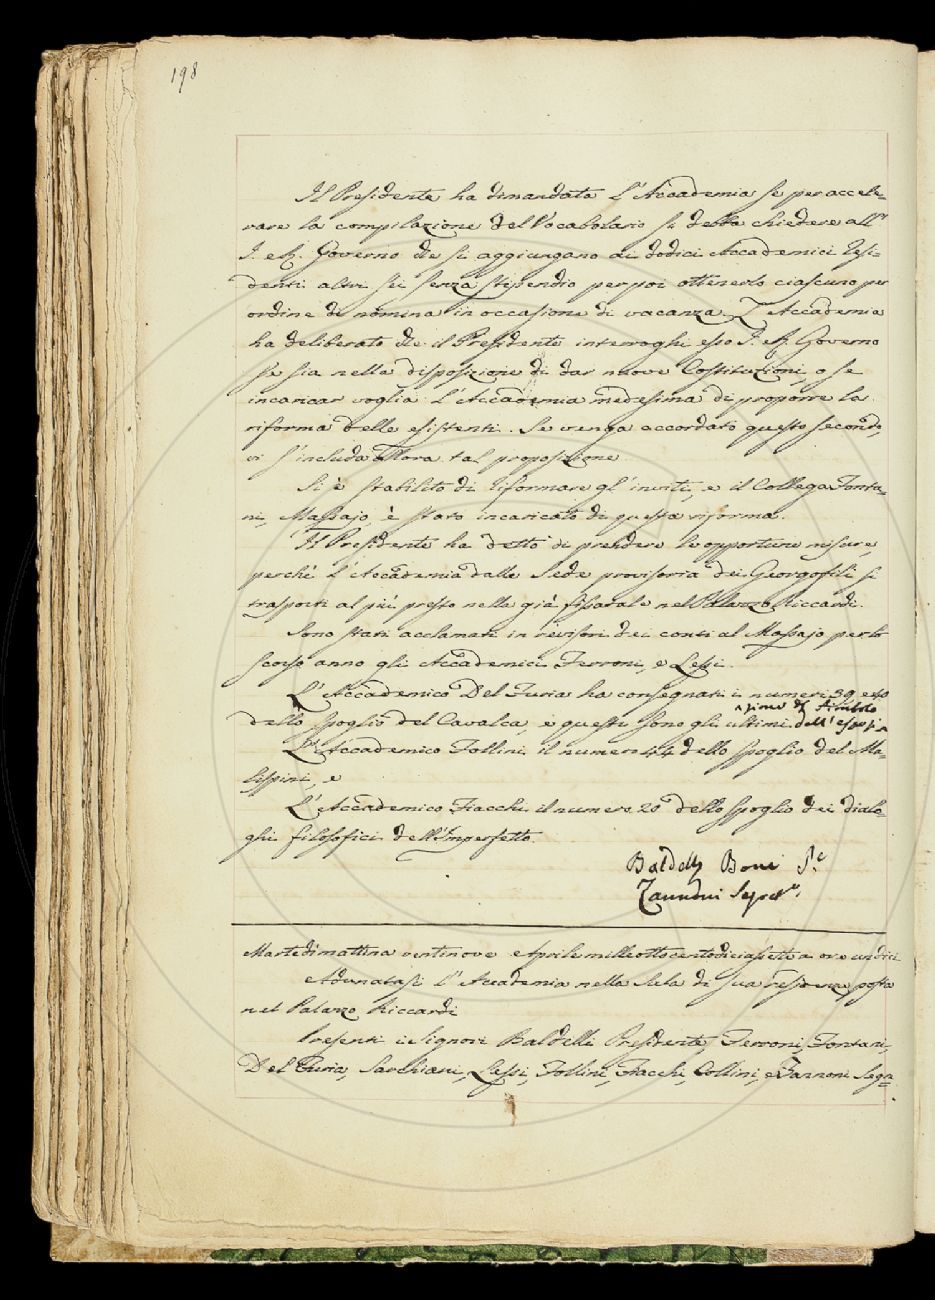 198
Il Presidente ha dimandato l'Accademia se per accele-
rare la compilazione del Vocabolario si debba chiedere all'
I. e R. Governo che si aggiungano ai dodici Accademici resi-
denti altri sei senza stipendio per poi ottenerlo ciascuno per
ordine di nomina in occasione di vacanza. L'Accademia
ha deliberato che il Presidente interroghi esso I. e R. Governo
se sia nella disposizione di dar nuove Costituzioni, o se
incaricar voglia l'Accademia medesima di proporre la
riforma delle esistenti. Se venga accordato questo secondo,
vi s'includa allora tal proposizione.
Si è stabilito di riformare gl'inviti, e il Collega Fonta-
ni, Massajo, è stato incaricato di questa riforma.
Il Presidente ha detto di prendere le opportune misure,
perché l'Accademia dalla Sede provisoria dei Georgofili si
trasporti al più presto nella già fissatale nel Palazzo Riccardi.
Sono stati acclamati in revisori dei conti al Massajo per lo
scorso anno gli Accademici Ferroni, e Lessi.
L'Accademico Del Furia ha consegnati i numeri 39 e 40
dello spoglio del Cavalca, e questi sono gli ultimi dell'esposi-
zione del Simbolo
L'Accademico Follini il numero 44 dello spoglio del Ma-
lispini, e
L'Accademico Fiacchi il numero 20 dello spoglio dei dialo-
ghi filosofici dell'Imperfetto.
Baldelli Boni P.e
Zannoni Segret.o
Martedì mattina ventinove Aprile milleottocentodiciassette a ore undici
Adunatasi l'Accademia nella Sala di sua residenza posta
nel Palazzo Riccardi
Presenti i Signori Baldelli Presidente, Ferroni, Fontani,
Del Furia, Sarchiani, Lessi, Follini, Fiacchi, Collini, e Zannoni Segr.